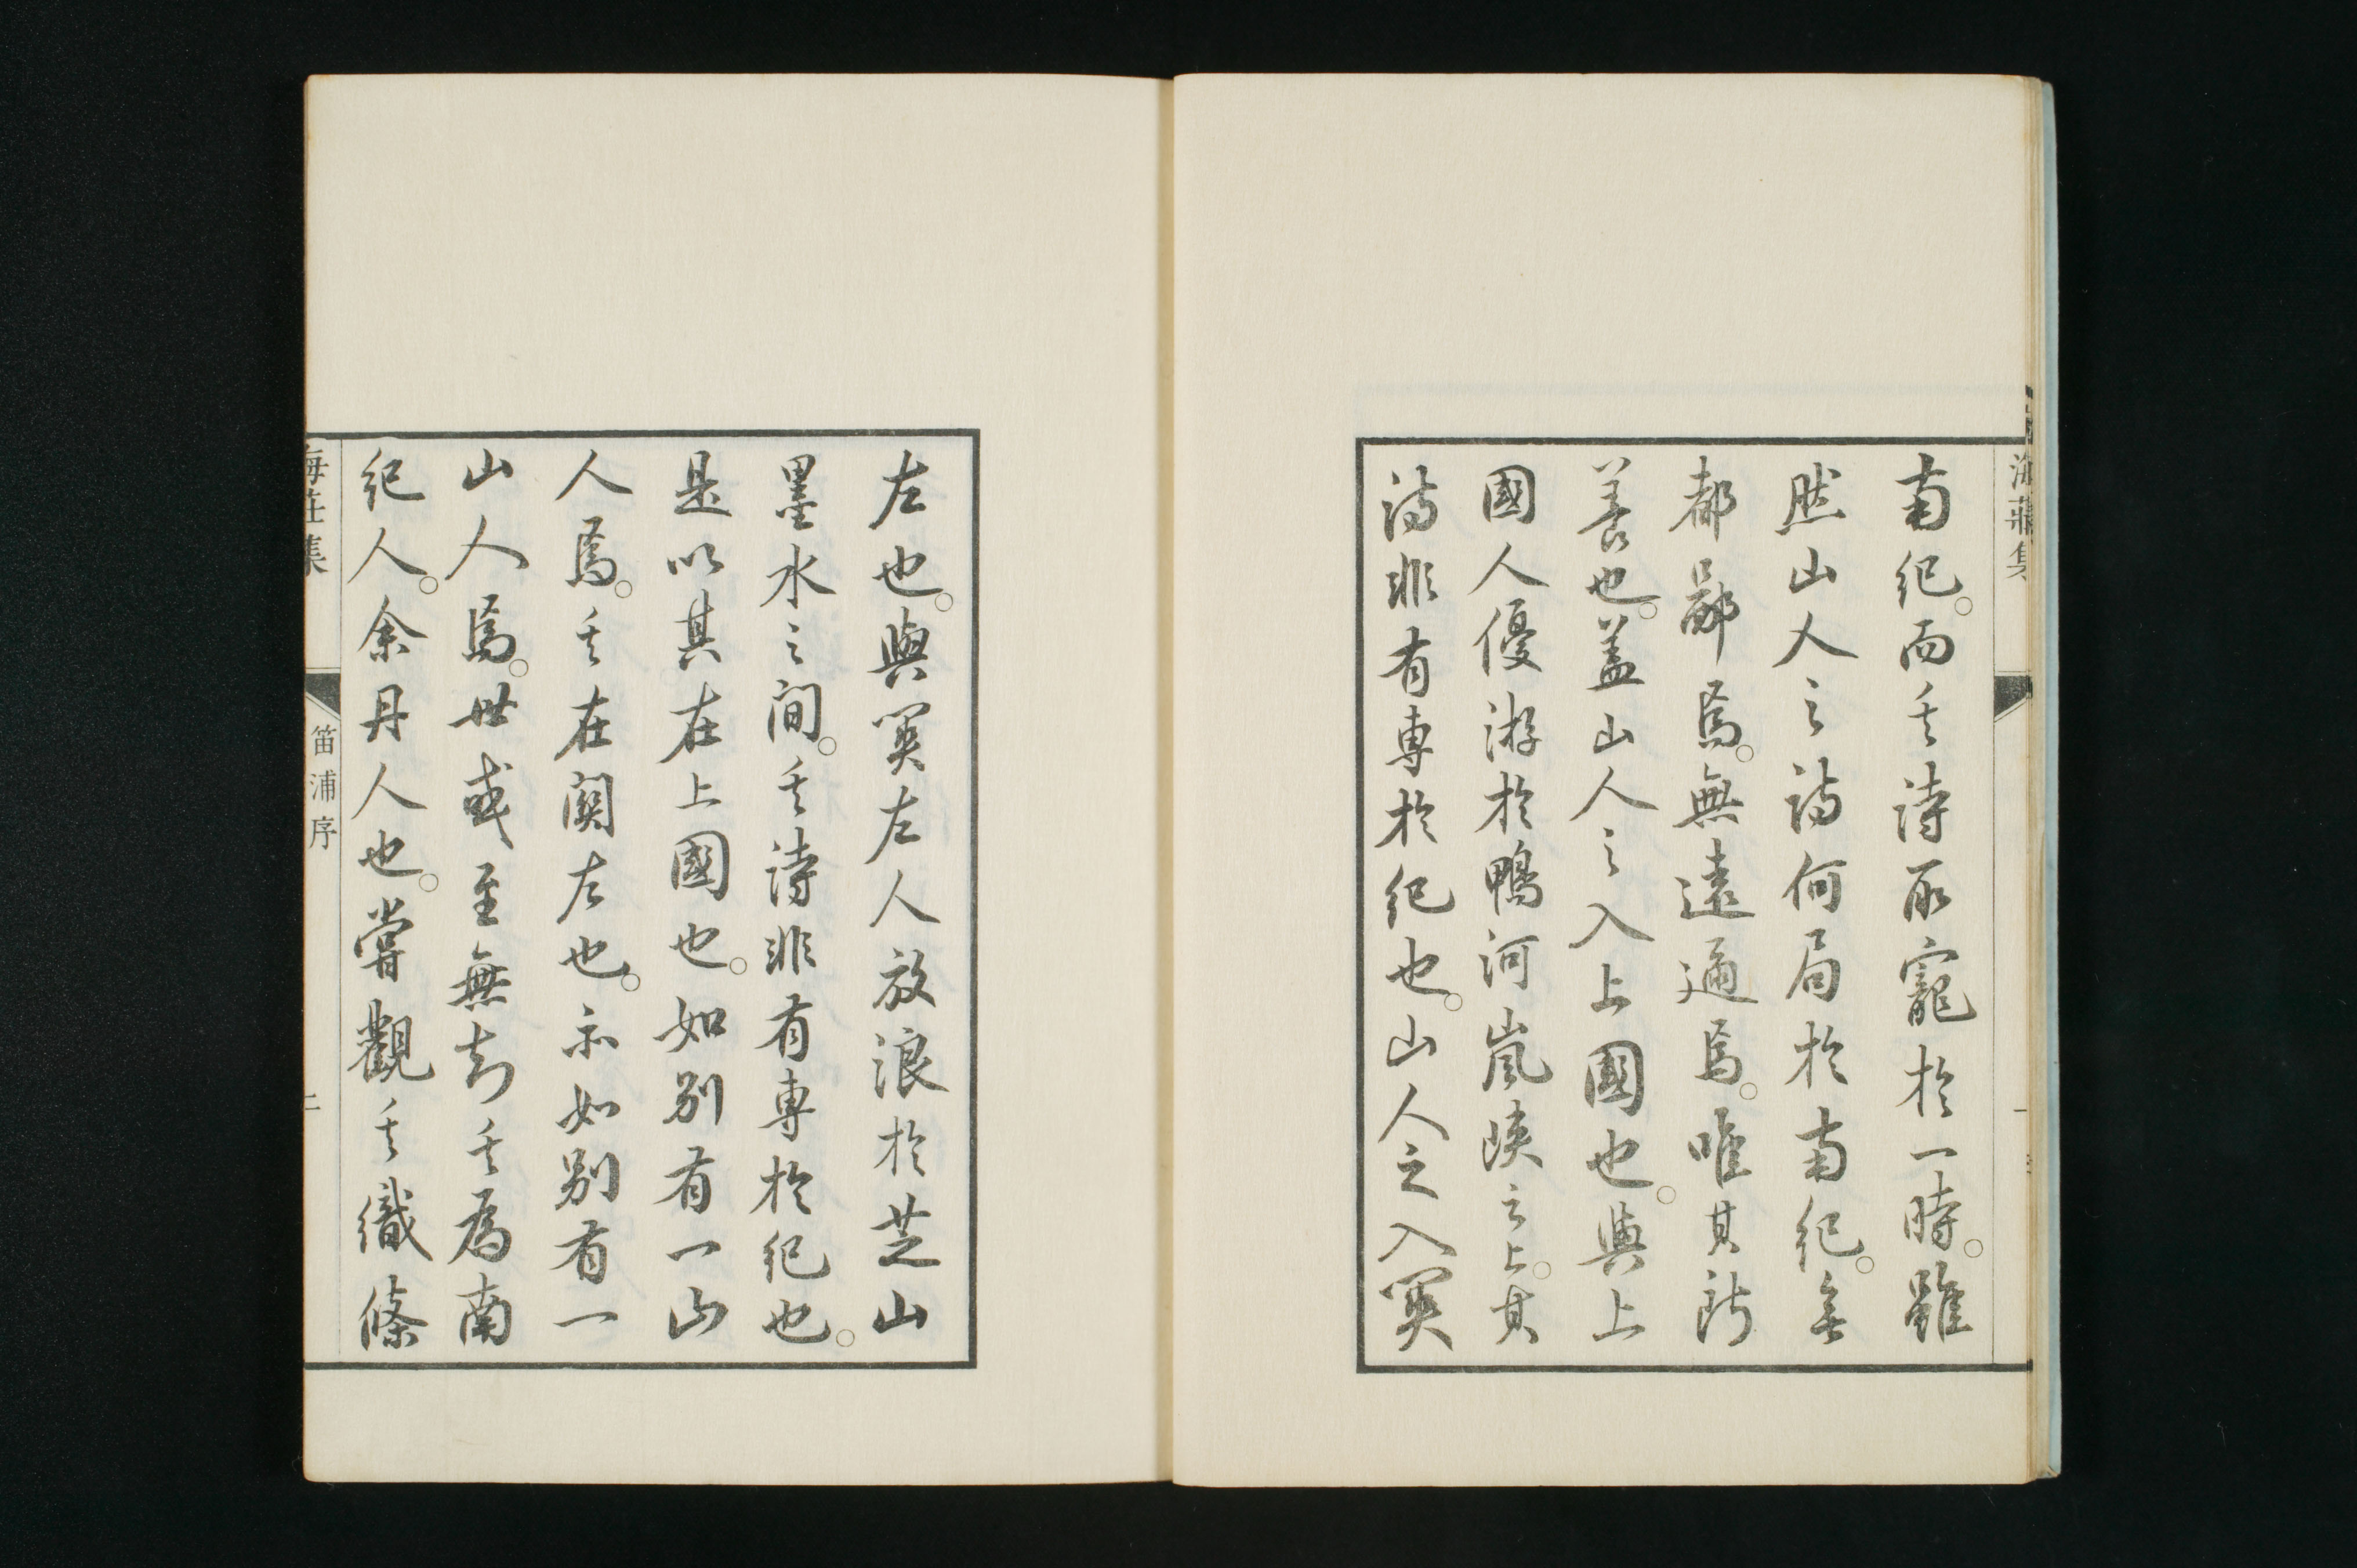 海莊集
南紀。而其詩取寵於一時。雖
然山人之詩何局於南紀。無
都鄙焉。無遠邇焉。唯其所
善也。蓋山人之入上國也。與上
國人優游於鴨河嵐峽之上。其
詩非有專於紀也。山人之入關
左也。與關左人放浪於芝山
墨水之間。其詩非有專於紀也。
是以其在上國也。如別有一山
人焉。其在關左也。亦如別有一
山人焉。世或至無知其為南
紀人。余丹人也。嘗觀其織絛
海莊集
笛浦序
二